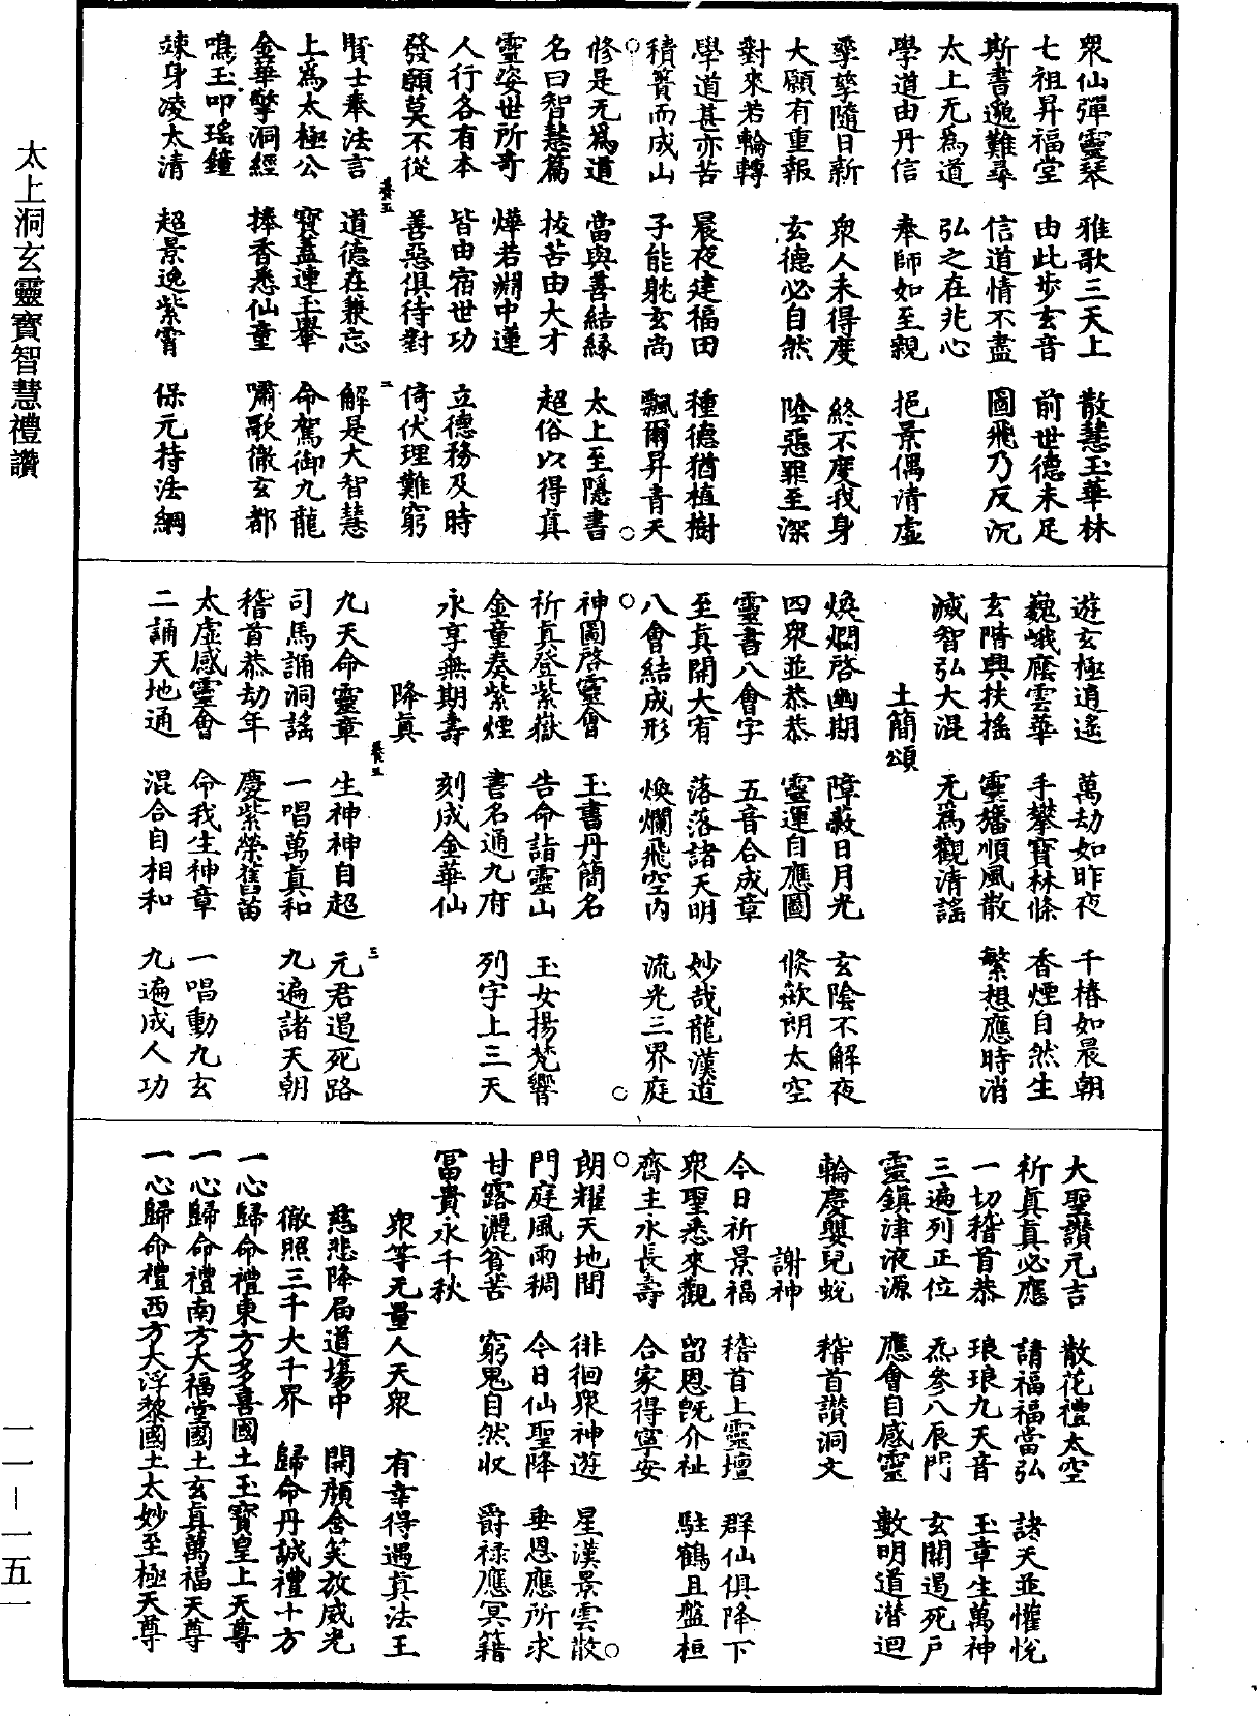 太上洞玄靈寶智慧禮讚
一一－一五一
眾仙彈靈琴　雅歌三天上　散慧玉華林
七祖昇福堂　由此步玄音　前世德未足
斯書邈難尋　信道情不盡　圖飛乃反沉
太上无爲道　弘之在兆心
學道由丹信　奉師如至親　挹景偶清虛
孳孳隨日新　眾人未得度　終不度我身
大願有重報　玄德必自然　陰惡罪至深
對來若輪轉
學道甚亦苦　晨夜建福田　種德猶植樹
積簣而成山　子能躭玄尚　飄爾昇青天
○　○
修是无爲道　當與善結緣　太上至隱書
名曰智慧篇　拔苦由大才　超俗以得真
靈姿世所奇　燁若淵中蓮
人行各有本　皆由宿世功　立德務及時
發願莫不從　善惡俱待對　倚伏理難窮
養五　二
賢士奉法言　道德在兼忘　解是大智慧
上爲太極公　寶蓋連玉轝　命駕御九龍
金華擎洞經　捧香悉仙童　嘯歌徹玄都
鳴玉叩瑤鐘
竦身凌太清　超景逸紫霄　保元持法綱
遊玄極逍遙　萬劫如昨夜　千椿如晨朝
巍峨蔭雲華　手攀寶林條　香煙自然生
玄階與扶搖　靈旛順風散　繁想應時消
滅智弘大混　无爲觀清謠
土簡頌
煥爛啓幽期　障蔽日月光　玄陰不解夜
四眾並恭恭　靈運自應圖　倏欻朗太空
靈書八會字　五音合成章
至真開大宥　落落諸天明　妙哉龍漢道
八會結成形　煥爛飛空内　流光三界庭
○　○
神圖啓靈會　玉書丹簡名
祈真登紫嶽　告命詣靈山　玉女揚梵響
金童奏紫煙　書名通九府　列字上三天
永享無期壽　刻成金華仙
降真
養五　三
九天命靈章　生神神自超　元君遏死路
司馬誦洞謠　一唱萬真和　九遍諸天朝
稽首恭劫年　慶紫榮舊苗
太虛感靈會　命我生神章　一唱動九玄
二誦天地通　混合自相和　九遍成人功
大聖讚元吉　散花禮太空
祈真真必應　請福福當弘　諸天並懽悅
一切稽首恭　琅琅九天音　玉章生萬神
三遍列正位　炁參八辰門　玄關遏死戶
靈鎮津液源　應會自感靈　數明道潛迴
輪慶嬰兒蛻　稽首讚洞文
謝神
今日祈景福　稽首上靈壇　群仙俱降下
眾聖悉來觀　留恩既介祉　駐鶴且盤桓
齊主永長壽　合家得寧安
○　○
朗耀天地間　徘徊眾神遊　星漢景雲散
門庭風雨稠　今日仙聖降　垂恩應所求
甘露灑貧苦　窮鬼自然收　爵禄應冥籍
冨貴永千秋
眾等无量人天眾　有幸得遇真法王
慈悲降届道場中　開顏含笑放威光
徹照三千大千界　歸命丹誠禮十方
一心歸命禮東方多喜國土玉寶皇上天尊
一心歸命禮南方大福堂國土玄真萬福天尊
一心歸命禮西方大浮黎國土太妙至極天尊